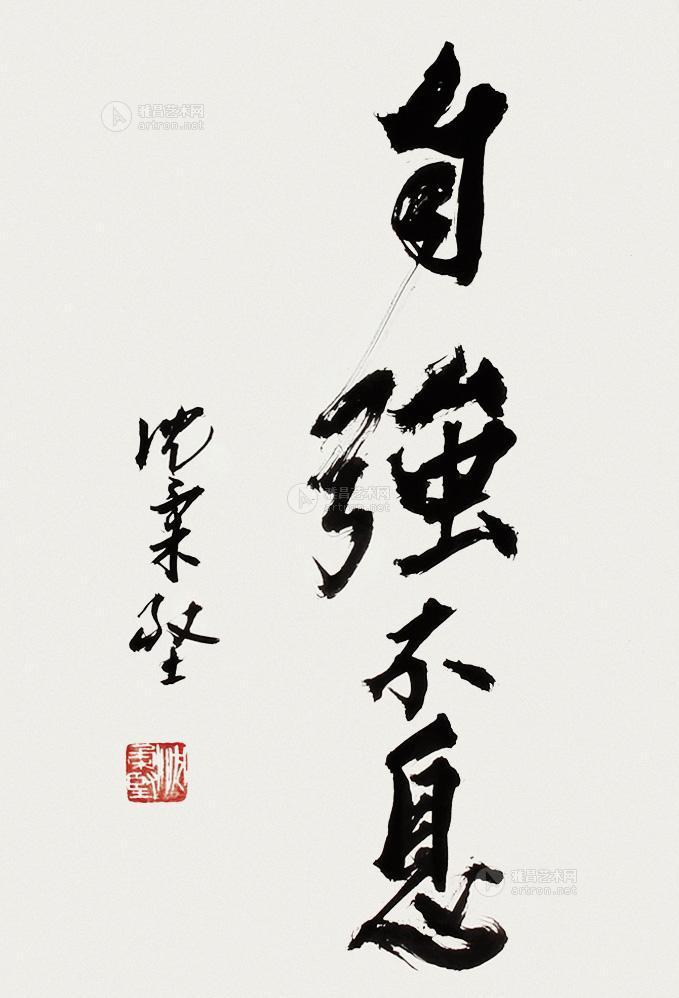 自強不息
沈秉堅
雅昌艺术网
artron.net
雅昌艺术网
artron.net
雅昌艺术网
artron.net